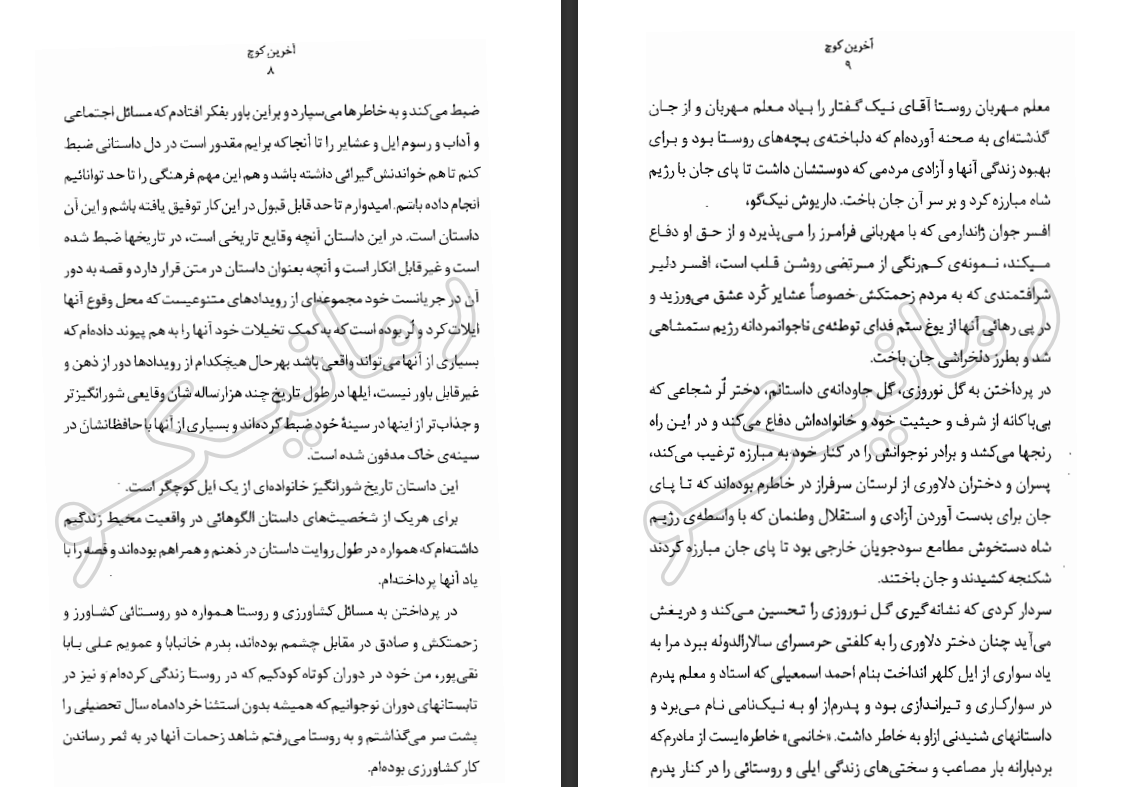 آخرین کوچ
۸
ضبط می‌کند و به خاطرها می‌سپارد و براین باور بفکر افتادم که مسائل اجتماعی
و آداب و رسوم ایل و عشایر را تا آنجا که برایم مقدور است در دل داستانی ضبط
کنم تا هم خواندنش گیرائی داشته باشد و هم این مهم فرهنگی را تا حد توانائیم
انجام داده باشم. امیدوارم تا حد قابل قبول در این کار توفیق یافته باشم و این آن
داستان است. در این داستان آنچه وقایع تاریخی است، در تاریخها ضبط شده
است و غیرقابل انکار است و آنچه بعنوان داستان در متن قرار دارد و قصه به دور
آن در جریانست خود مجموعه‌ای از رویدادهای متنوعیست که محل وقوع آنها
ایلات کرد و لُر بوده است که به کمک تخیلات خود آنها را به هم پیوند داده‌ام که
بسیاری از آنها می‌تواند واقعی باشد بهرحال هیچکدام از رویدادها دور از ذهن و
غیرقابل باور نیست، ایلها در طول تاریخ چند هزارساله شان وقایعی شورانگیزتر
و جذاب‌تر از اینها در سینهٔ خود ضبط کرده‌اند و بسیاری از آنها با حافظانشان در
سینه‌ی خاک مدفون شده است.
این داستان تاریخ شورانگیز خانواده‌ای از یک ایل کوچگر است.
برای هریک از شخصیت‌های داستان الگوهائی در واقعیت محیط زندگیم
داشته‌ام که همواره در طول روایت داستان در ذهنم و همراهم بوده‌اند و قصه را با
یاد آنها پرداخته‌ام.
در پرداختن به مسائل کشاورزی و روستا همواره دو روستائی کشاورز و
زحمتکش و صادق در مقابل چشمم بوده‌اند، پدرم خانبابا و عمویم علی بابا
نقی‌پور، من خود در دوران کوتاه کودکیم که در روستا زندگی کرده‌ام و نیز در
تابستانهای دوران نوجوانیم که همیشه بدون استثنا خردادماه سال تحصیلی را
پشت سر می‌گذاشتم و به روستا می‌رفتم شاهد زحمات آنها در به ثمر رساندن
کار کشاورزی بوده‌ام.
رمانیکو
آخرین کوچ
۹
معلم مهربان روستا آقای نیک گفتار را بیاد معلم مهربان و از جان
گذشته‌ای به صحنه آورده‌ام که دلباخته‌ی بچه‌های روستا بود و برای
بهبود زندگی آنها و آزادی مردمی که دوستشان داشت تا پای جان با رژیم
شاه مبارزه کرد و بر سر آن جان باخت. داریوش نیک‌گو،
افسر جوان ژاندارمی که با مهربانی فرامرز را می‌پذیرد و از حق او دفاع
میکند، نمونه‌ی کم‌رنگی از مرتضی روشن قلب است، افسر دلیر
شرافتمندی که به مردم زحمتکش خصوصاً عشایر کُرد عشق می‌ورزید و
در پی رهائی آنها از یوغ ستم فدای توطئه‌ی ناجوانمردانه رژیم ستمشاهی
شد و بطرز دلخراشی جان باخت.
در پرداختن به گل نوروزی، گل جاودانه‌ی داستانم، دختر لُر شجاعی که
بی‌باکانه از شرف و حیثیت خود و خانواده‌اش دفاع می‌کند و در این راه
رنجها می‌کشد و برادر نوجوانش را در کنار خود به مبارزه ترغیب می‌کند،
پسران و دختران دلاوری از لرستان سرفراز در خاطرم بوده‌اند که تا پای
جان برای بدست آوردن آزادی و استقلال وطنمان که با واسطه‌ی رژیم
شاه دستخوش مطامع سودجویان خارجی بود تا پای جان مبارزه کردند
شکنجه کشیدند و جان باختند.
سردار کردی که نشانه گیری گل نوروزی را تحسین می‌کند و دریغش
می‌آید چنان دختر دلاوری را به کلفتی حرمسرای سالارالدوله ببرد مرا به
یاد سواری از ایل کلهر انداخت بنام احمد اسمعیلی که استاد و معلم پدرم
در سوارکاری و تیراندازی بود و پدرم از او به نیک‌نامی نام می‌برد و
داستانهای شنیدنی ازاو به خاطر داشت. «خانمی» خاطره‌ایست از مادرم که
بردبارانه بار مصاعب و سختی‌های زندگی ایلی و روستائی را در کنار پدرم
رمانیکو